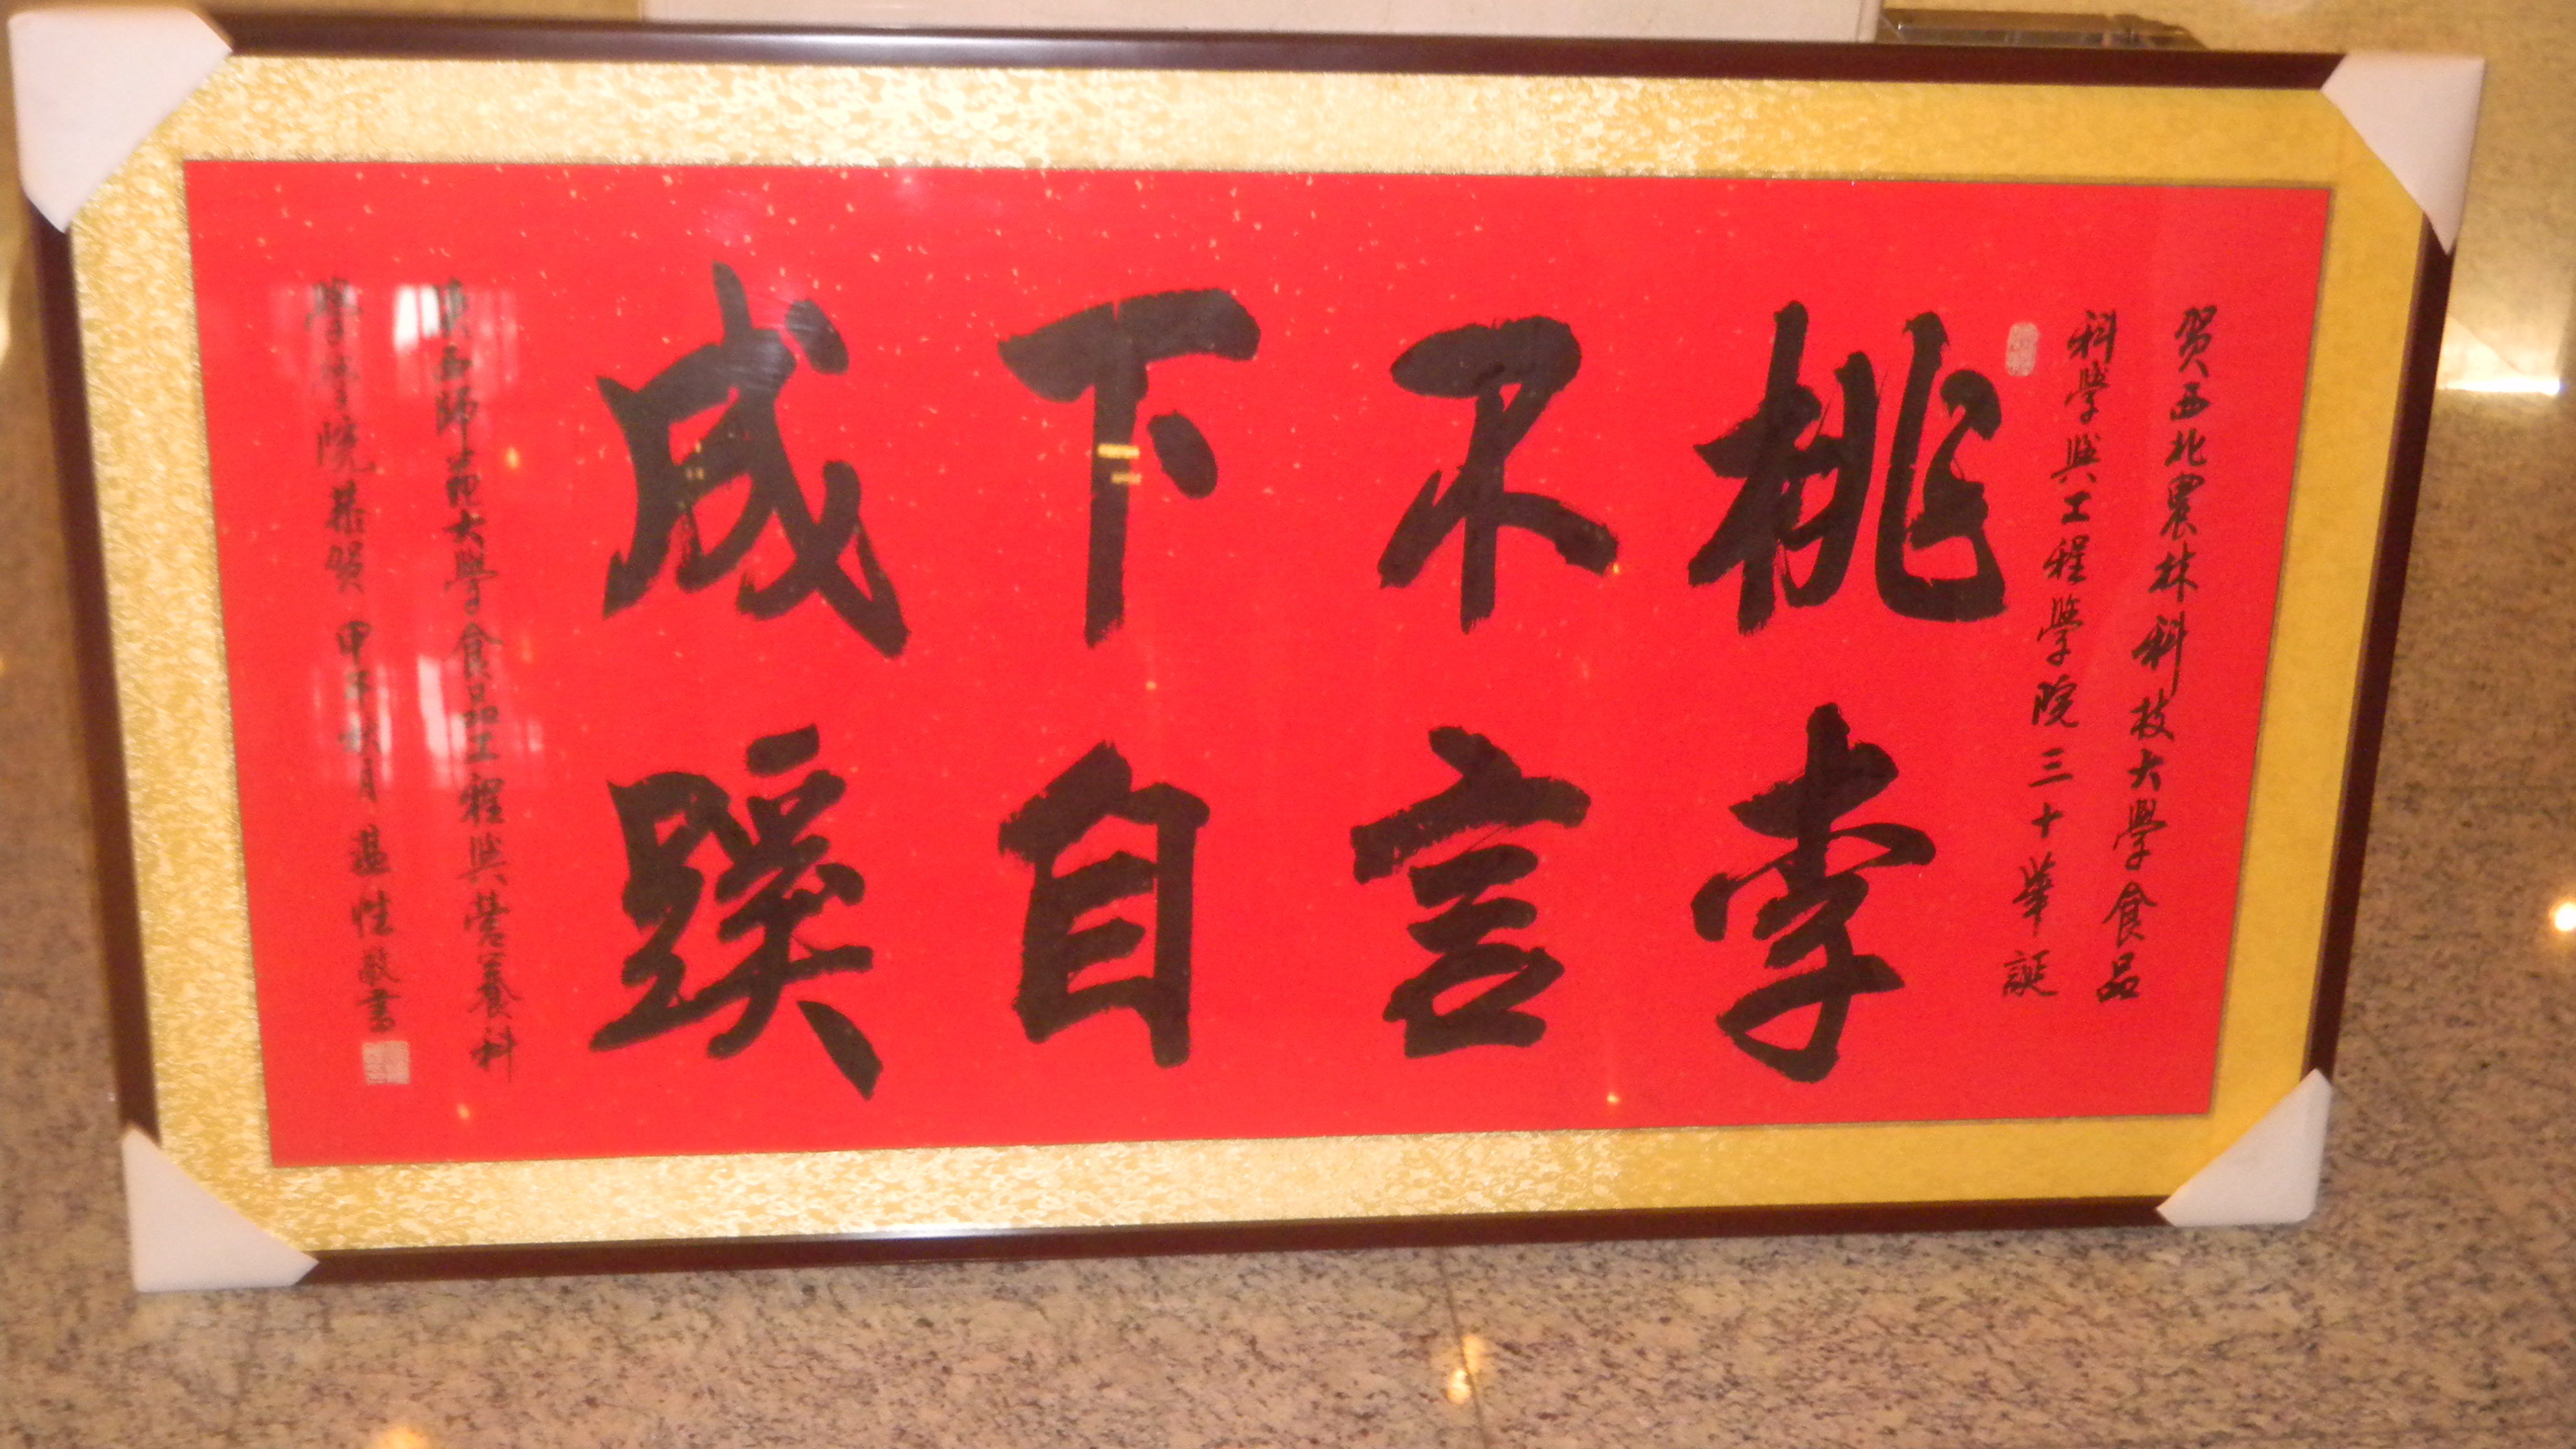 贺西北農林科技大學食品
科學與工程學院三十華誕
桃李
不言
下自
成蹊
陕西師范大學食品工程與营養科
學學院恭贺 甲午秋月 温性敬書